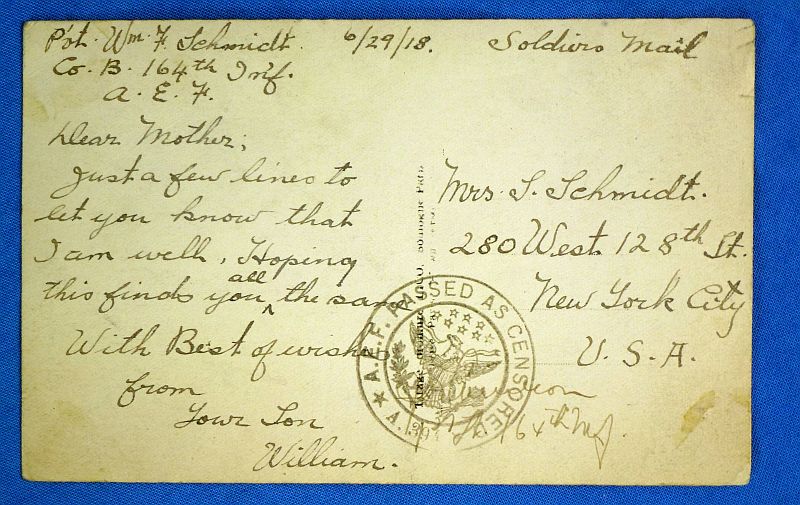 Pvt. Wm. F. Schmidt. 6/29/18. Soldiers Mail
Co. B. 164th Inf.
A. E. F.
Dear Mother;
Just a few lines to
let you know that
I am well, Hoping
this finds you all the same
With Best of wishes
from
Your Son
William.
Mrs. S. Schmidt.
280 West. 128th St.
New York City
U. S. A.
A.E.F. PASSED AS CENSORED
164th Inf.